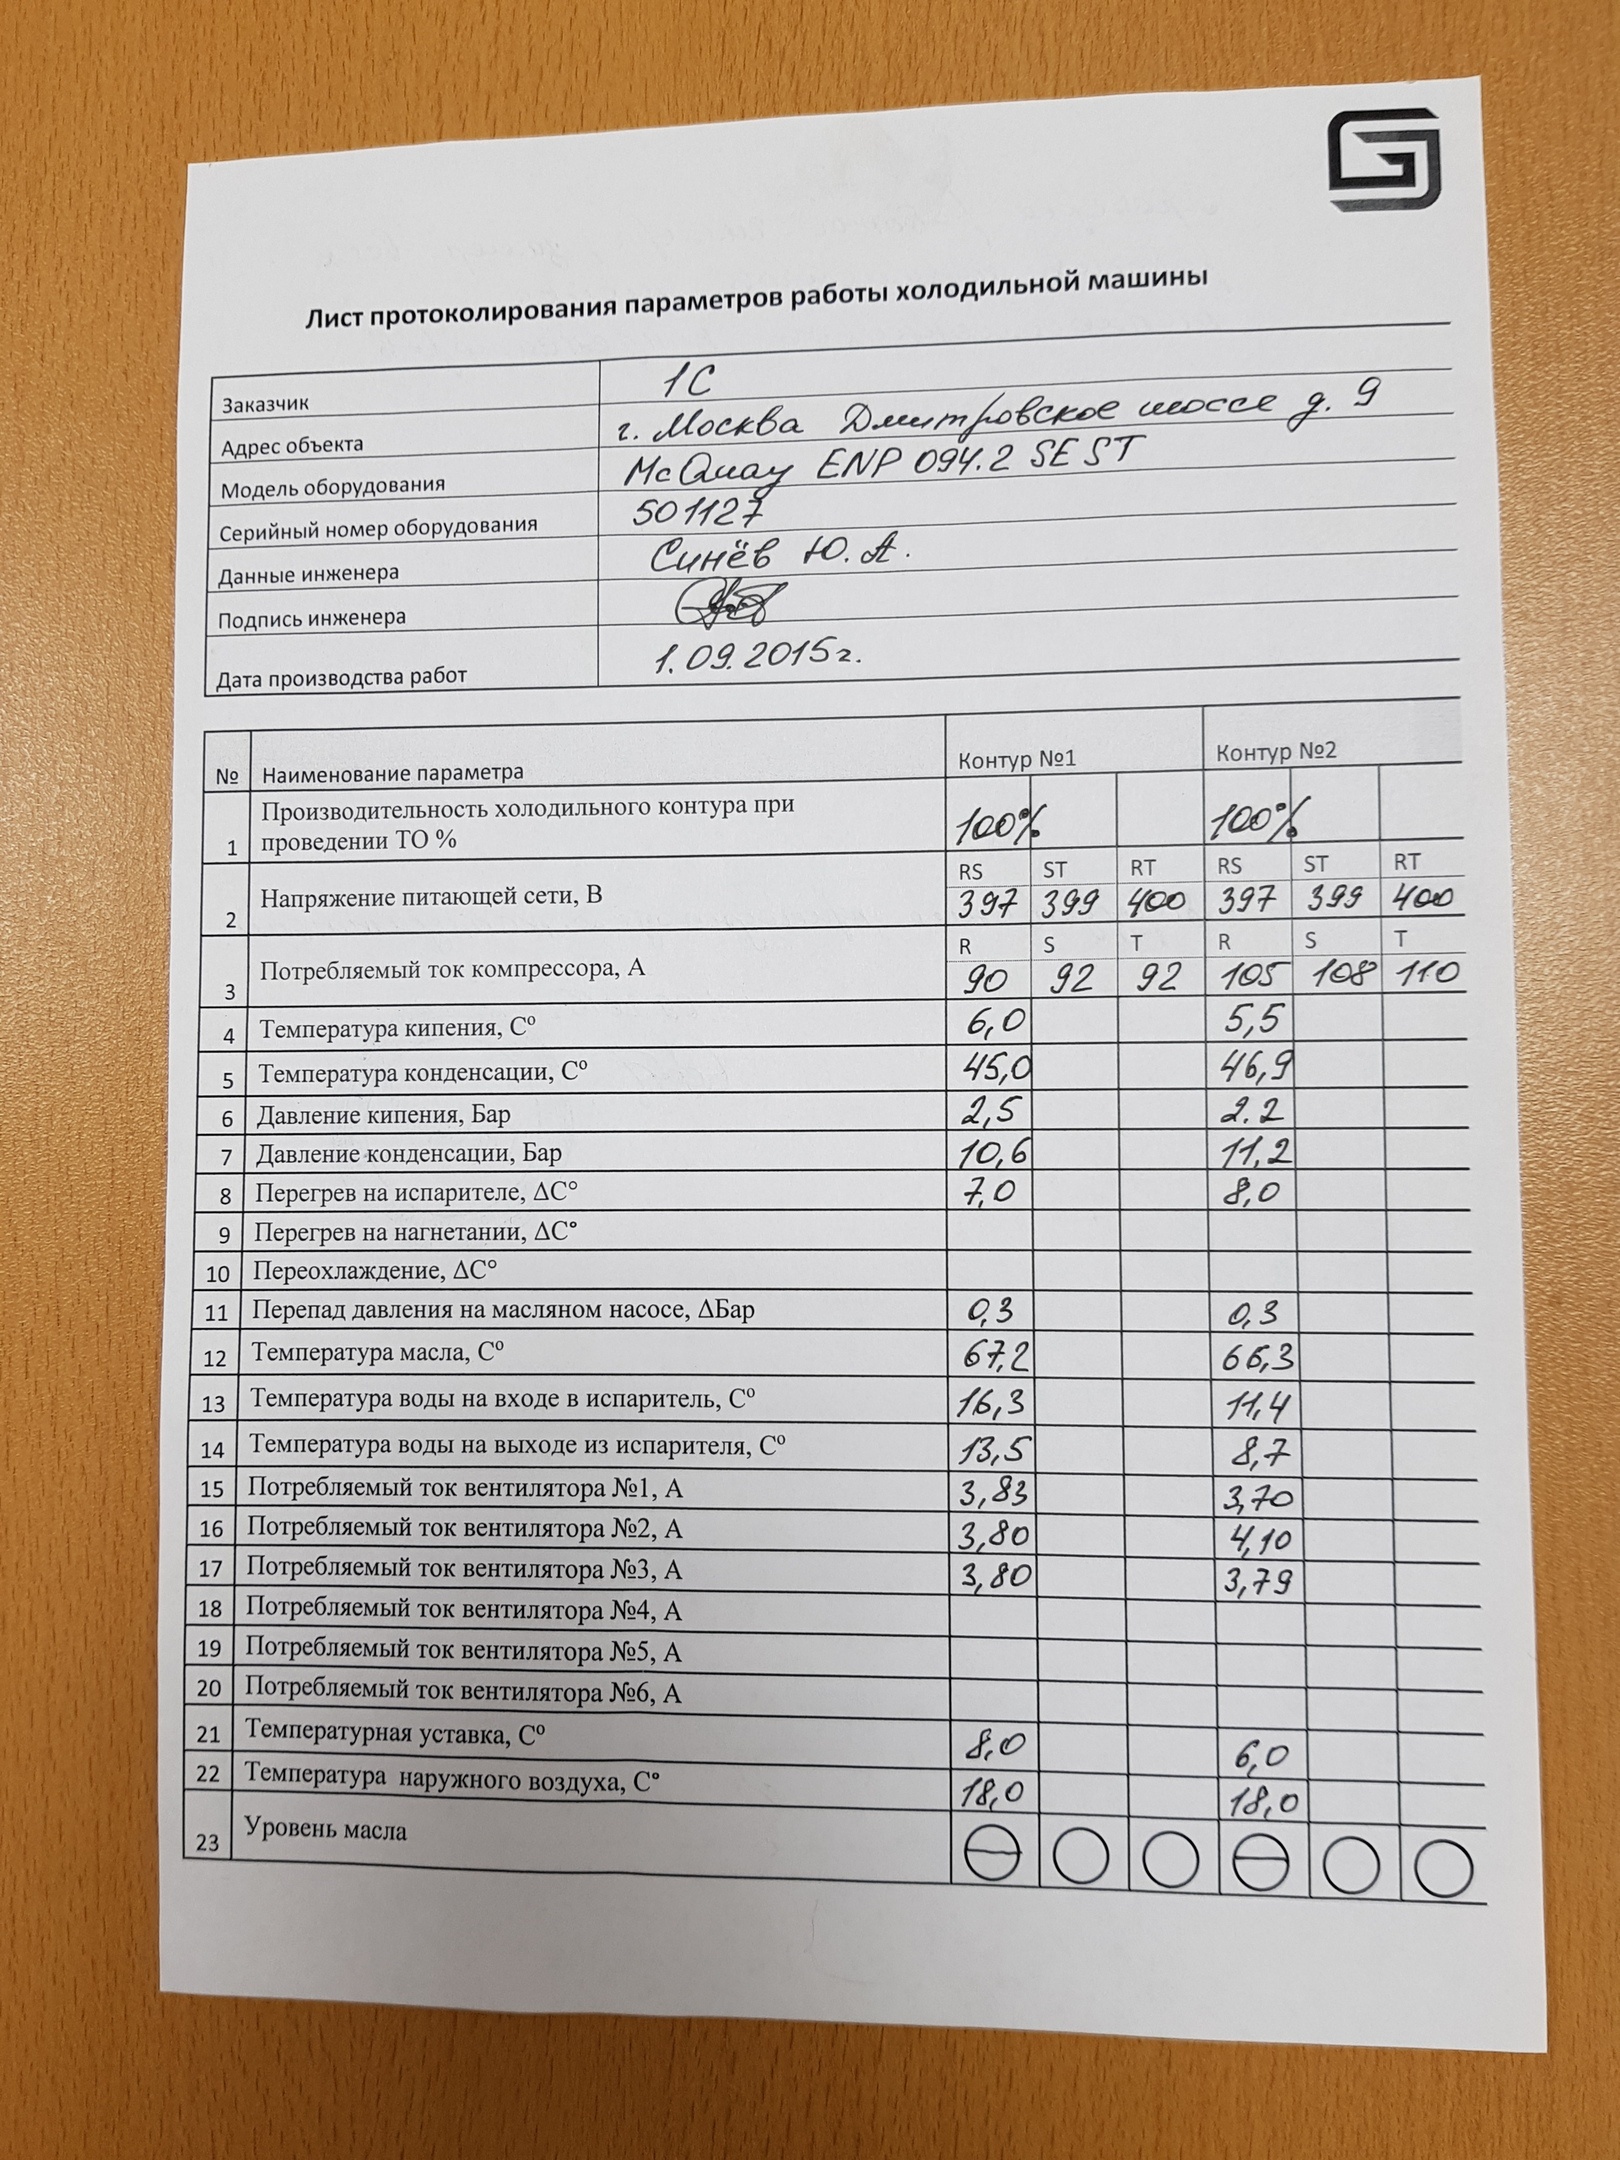 Лист протоколирования параметров работы холодильной машины
Заказчик 1С
Адрес объекта г. Москва Дмитровское шоссе д. 9
Модель оборудования McQuay ENP 094.2 SE ST
Серийный номер оборудования 501127
Данные инженера Синёв Ю. А.
Подпись инженера
Дата производства работ 1.09.2015г.
№ Наименование параметра Контур №1 Контур №2
1 Производительность холодильного контура при проведении ТО % 100% 100%
RS ST RT RS ST RT
2 Напряжение питающей сети, В 397 399 400 397 399 400
R S T R S T
3 Потребляемый ток компрессора, А 90 92 92 105 108 110
4 Температура кипения, С⁰ 6,0 5,5
5 Температура конденсации, С⁰ 45,0 46,9
6 Давление кипения, Бар 2,5 2.2
7 Давление конденсации, Бар 10,6 11,2
8 Перегрев на испарителе, ΔС° 7,0 8,0
9 Перегрев на нагнетании, ΔС°
10 Переохлаждение, ΔС°
11 Перепад давления на масляном насосе, ΔБар 0,3 0,3
12 Температура масла, С⁰ 67,2 66,3
13 Температура воды на входе в испаритель, С⁰ 16,3 11,4
14 Температура воды на выходе из испарителя, С⁰ 13,5 8,7
15 Потребляемый ток вентилятора №1, А 3,83 3,70
16 Потребляемый ток вентилятора №2, А 3,80 4,10
17 Потребляемый ток вентилятора №3, А 3,80 3,79
18 Потребляемый ток вентилятора №4, А
19 Потребляемый ток вентилятора №5, А
20 Потребляемый ток вентилятора №6, А
21 Температурная уставка, С⁰ 8,0 6,0
22 Температура наружного воздуха, С° 18,0 18,0
23 Уровень масла